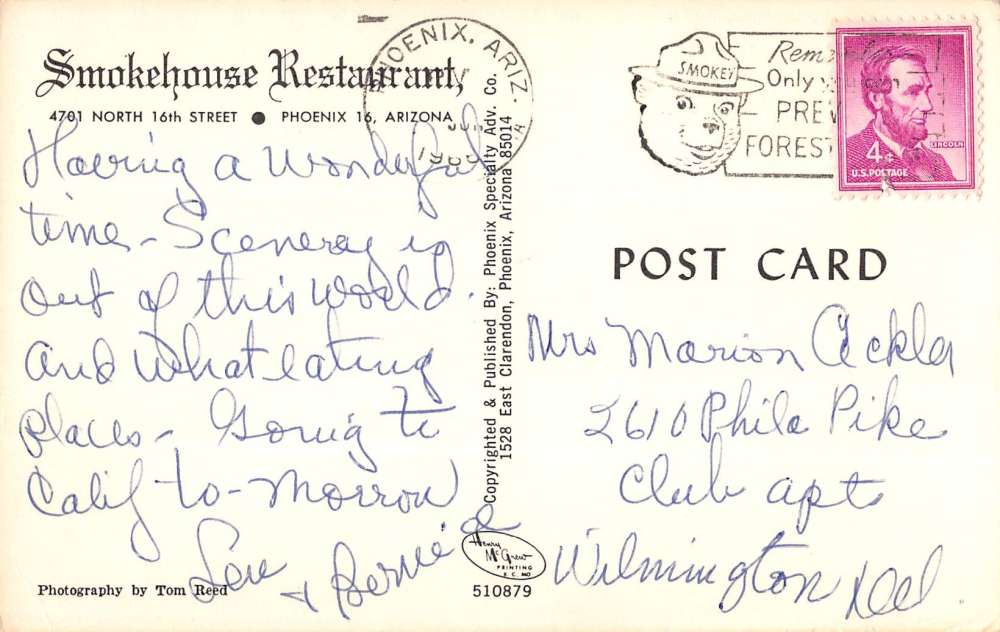 Smokehouse Restaurant,
4701 NORTH 16th STREET ● PHOENIX 16, ARIZONA
PHOENIX, ARIZ.
SMOKEY
Only you can
PREV
FOREST
LINCOLN
4¢
U.S. POSTAGE
Having a wonderful
time - Scenerey is
out of this world.
and what eating
places - Going to
Calif to-morrow
& Bernie
Photography by Tom Reed
Copyrighted & Published By: Phoenix Specialty Adv. Co.
1528 East Clarendon, Phoenix, Arizona 85014
Henry
McGrew
PRINTING
K.C. MO
510879
POST CARD
Mrs Marion Ackla
2610 Phila Pike
Club apt
Wilmington Del